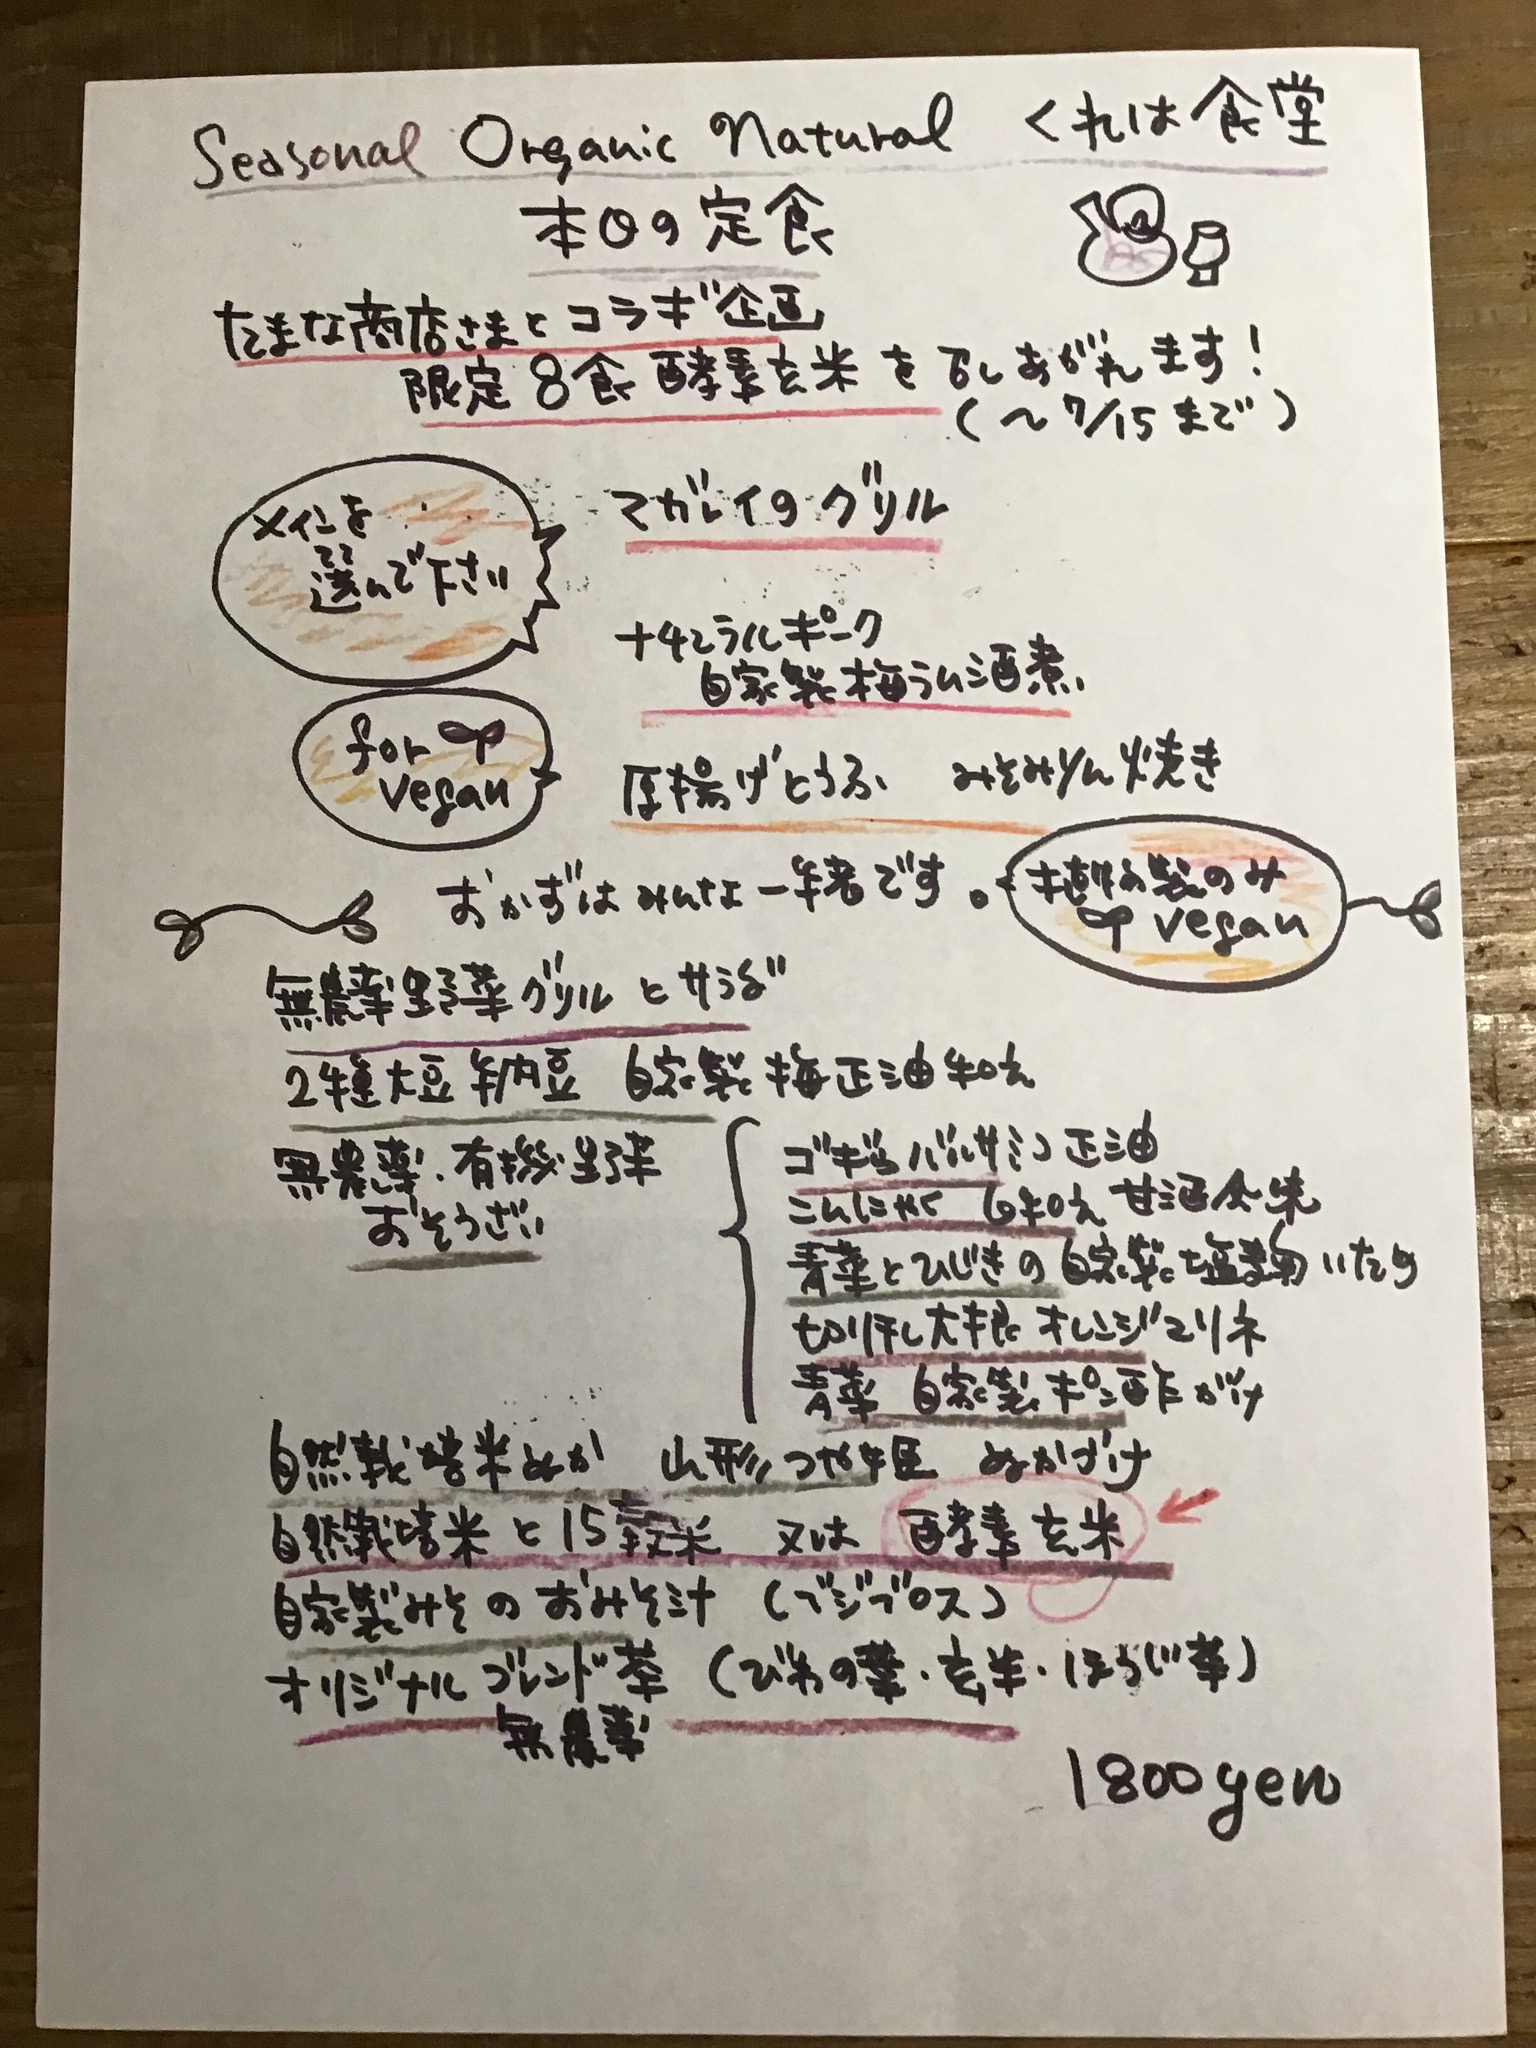 Seasonal Organic Natural くれは食堂
本日の定食
たまな商店さまとコラボ企画
限定8食 酵素玄米を召しあがれます!
(〜7/15まで)
メインを
選んで下さい
マガレイのグリル
ナチュラルポーク
自家製梅ラム酒煮
for
vegan
厚揚げとうふ みそみりん焼き
おかずはみんな一緒です。
植物製のみ
vegan
無農薬野菜グリルとサラダ
2種大豆納豆 自家製梅正油和え
無農薬・有機野菜
おそうざい
ゴボウバルサミコ正油
こんにゃく 白和え 甘酒風味
青菜とひじきの自家製塩麹いため
切り干し大根オレンジマリネ
青菜 自家製ポン酢がけ
自然栽培米ぬか 山形つや姫 ぬかづけ
自然栽培米と15穀米 又は 酵素玄米
自家製みそのおみそ汁 (ベジブロス)
オリジナルブレンド茶 (びわの葉・玄米・ほうじ茶)
無農薬
1800yen